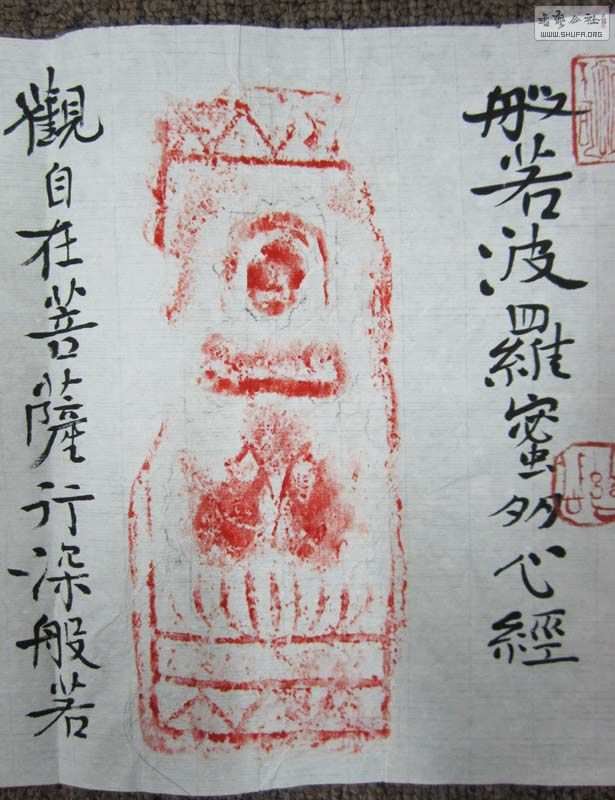 般若波羅蜜多心經
觀自在菩薩行深般若
WWW.SHUFA.ORG